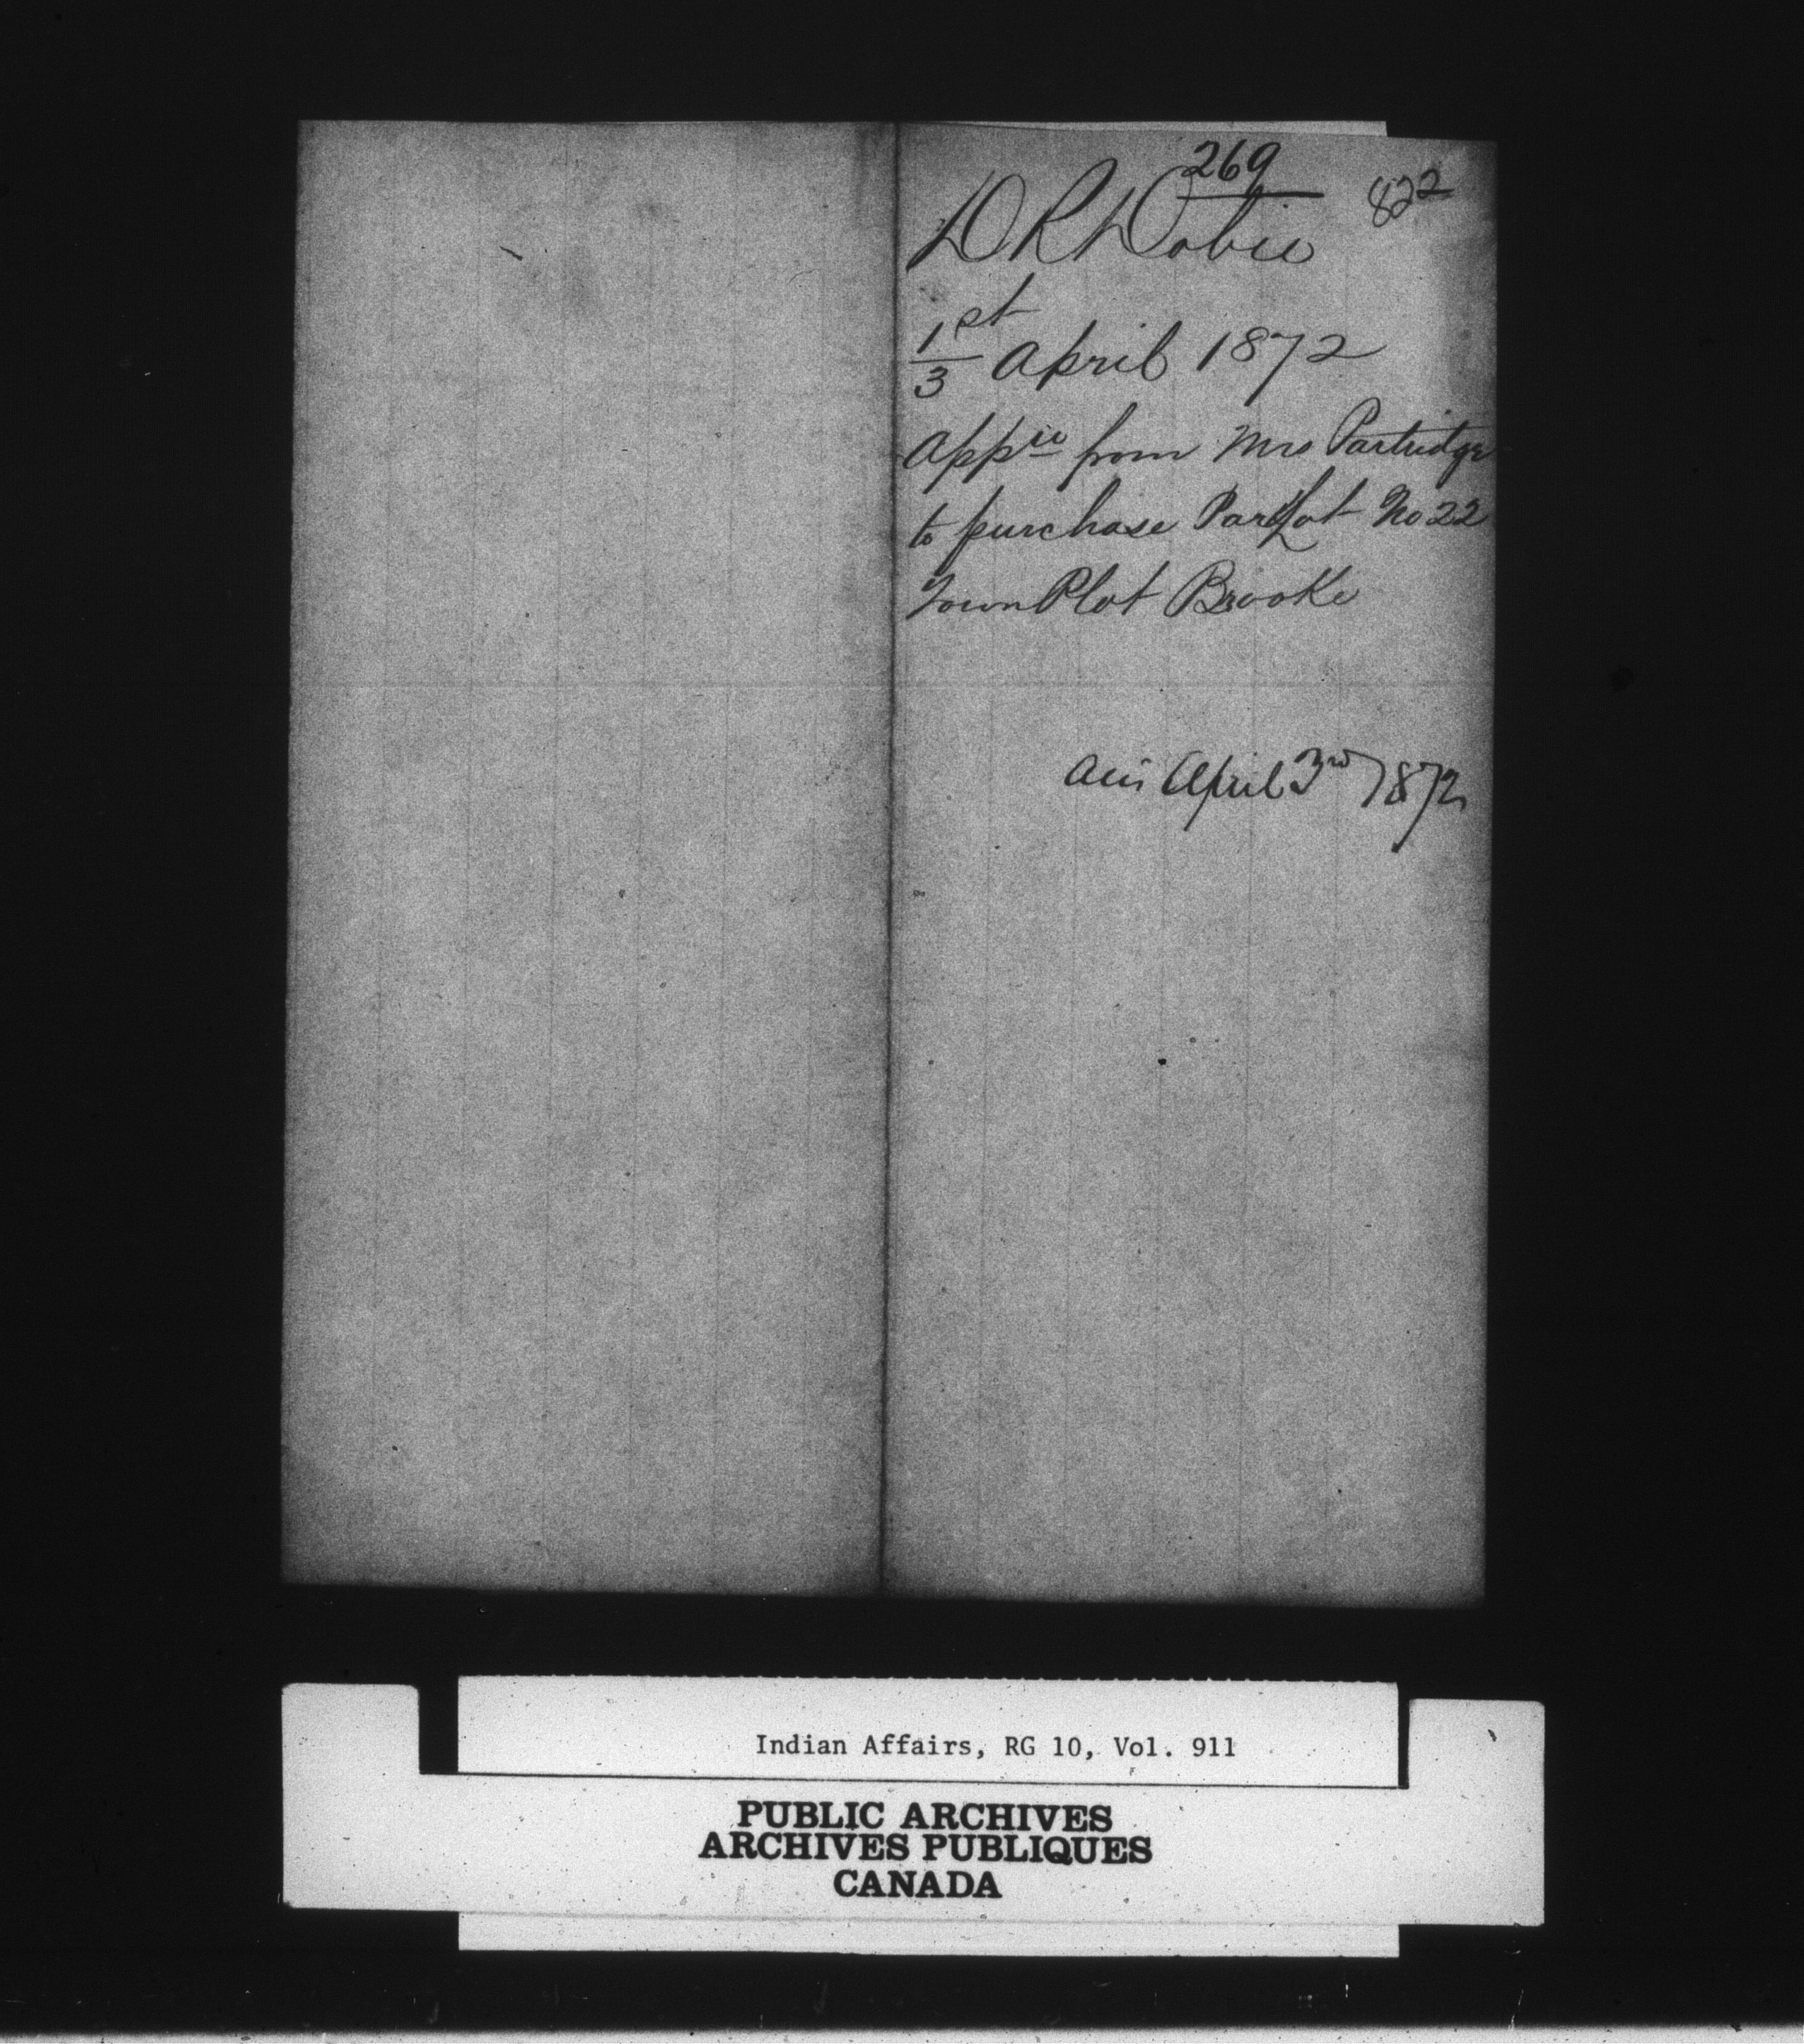 269
822
D R Dobie
1st/3 April 1872
Appn from Mrs Partridge
to purchase Park Lot No 22
Town Plot Brooke
Ans April 3rd 1872
Indian Affairs, RG 10, Vol. 911
PUBLIC ARCHIVES
ARCHIVES PUBLIQUES
CANADA